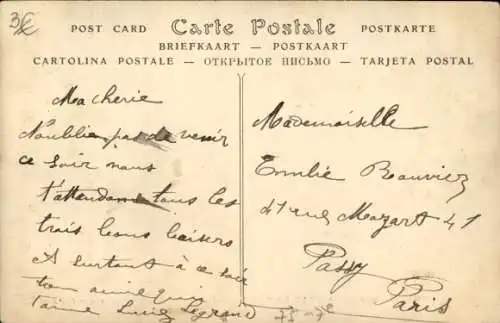 3€
POST CARD Carte Postale POSTKARTE
BRIEFKAART — POSTKAART
CARTOLINA POSTALE — ОТКРЫТОЕ ПИСЬМО — TARJETA POSTAL
Ma cherie
N'oublie pas de venir
ce soir nous
t'attendons tous les
trois bons baisers
A surtout à ce soir
ton amie qui
t'aime Legrand
Mademoiselle
Emilie Bouvier
41 rue Mozart 41
Passy
Paris
75